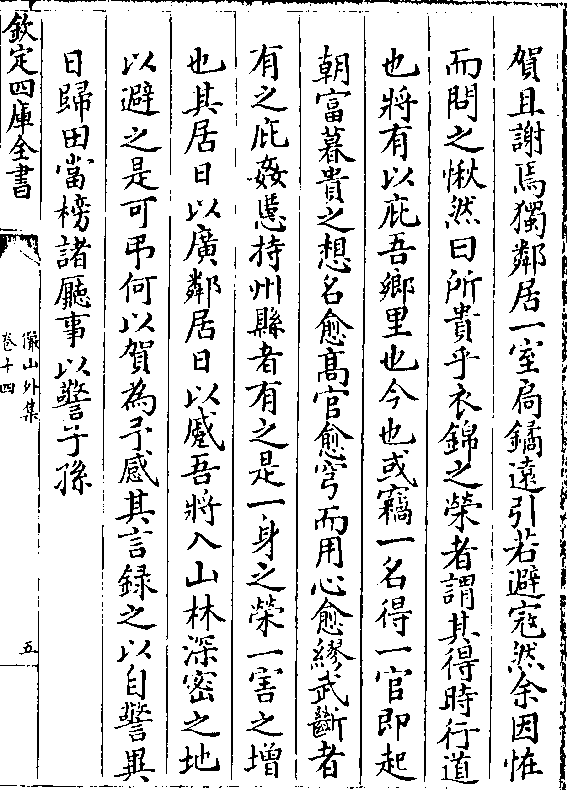 賀且謝焉獨鄰居一室扃鐍遠引若避寇然余因恠
而問之愀然曰所貴乎衣錦之榮者謂其得時行道
也將有以庇吾鄉里也今也或竊一名得一官即起
朝富暮貴之想名愈髙官愈穹而用心愈繆武斷者
有之庇姦慝持州縣者有之是一身之榮一害之增
也其居日以廣鄰居日以蹙吾將入山林深密之地
以避之是可弔何以賀為予感其言録之以自警異
日歸田當榜諸廳事以警子孫
欽定四庫全書
儼山外集
卷十四
五